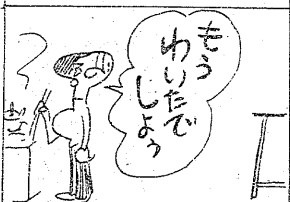 もう
わいたで
しょう